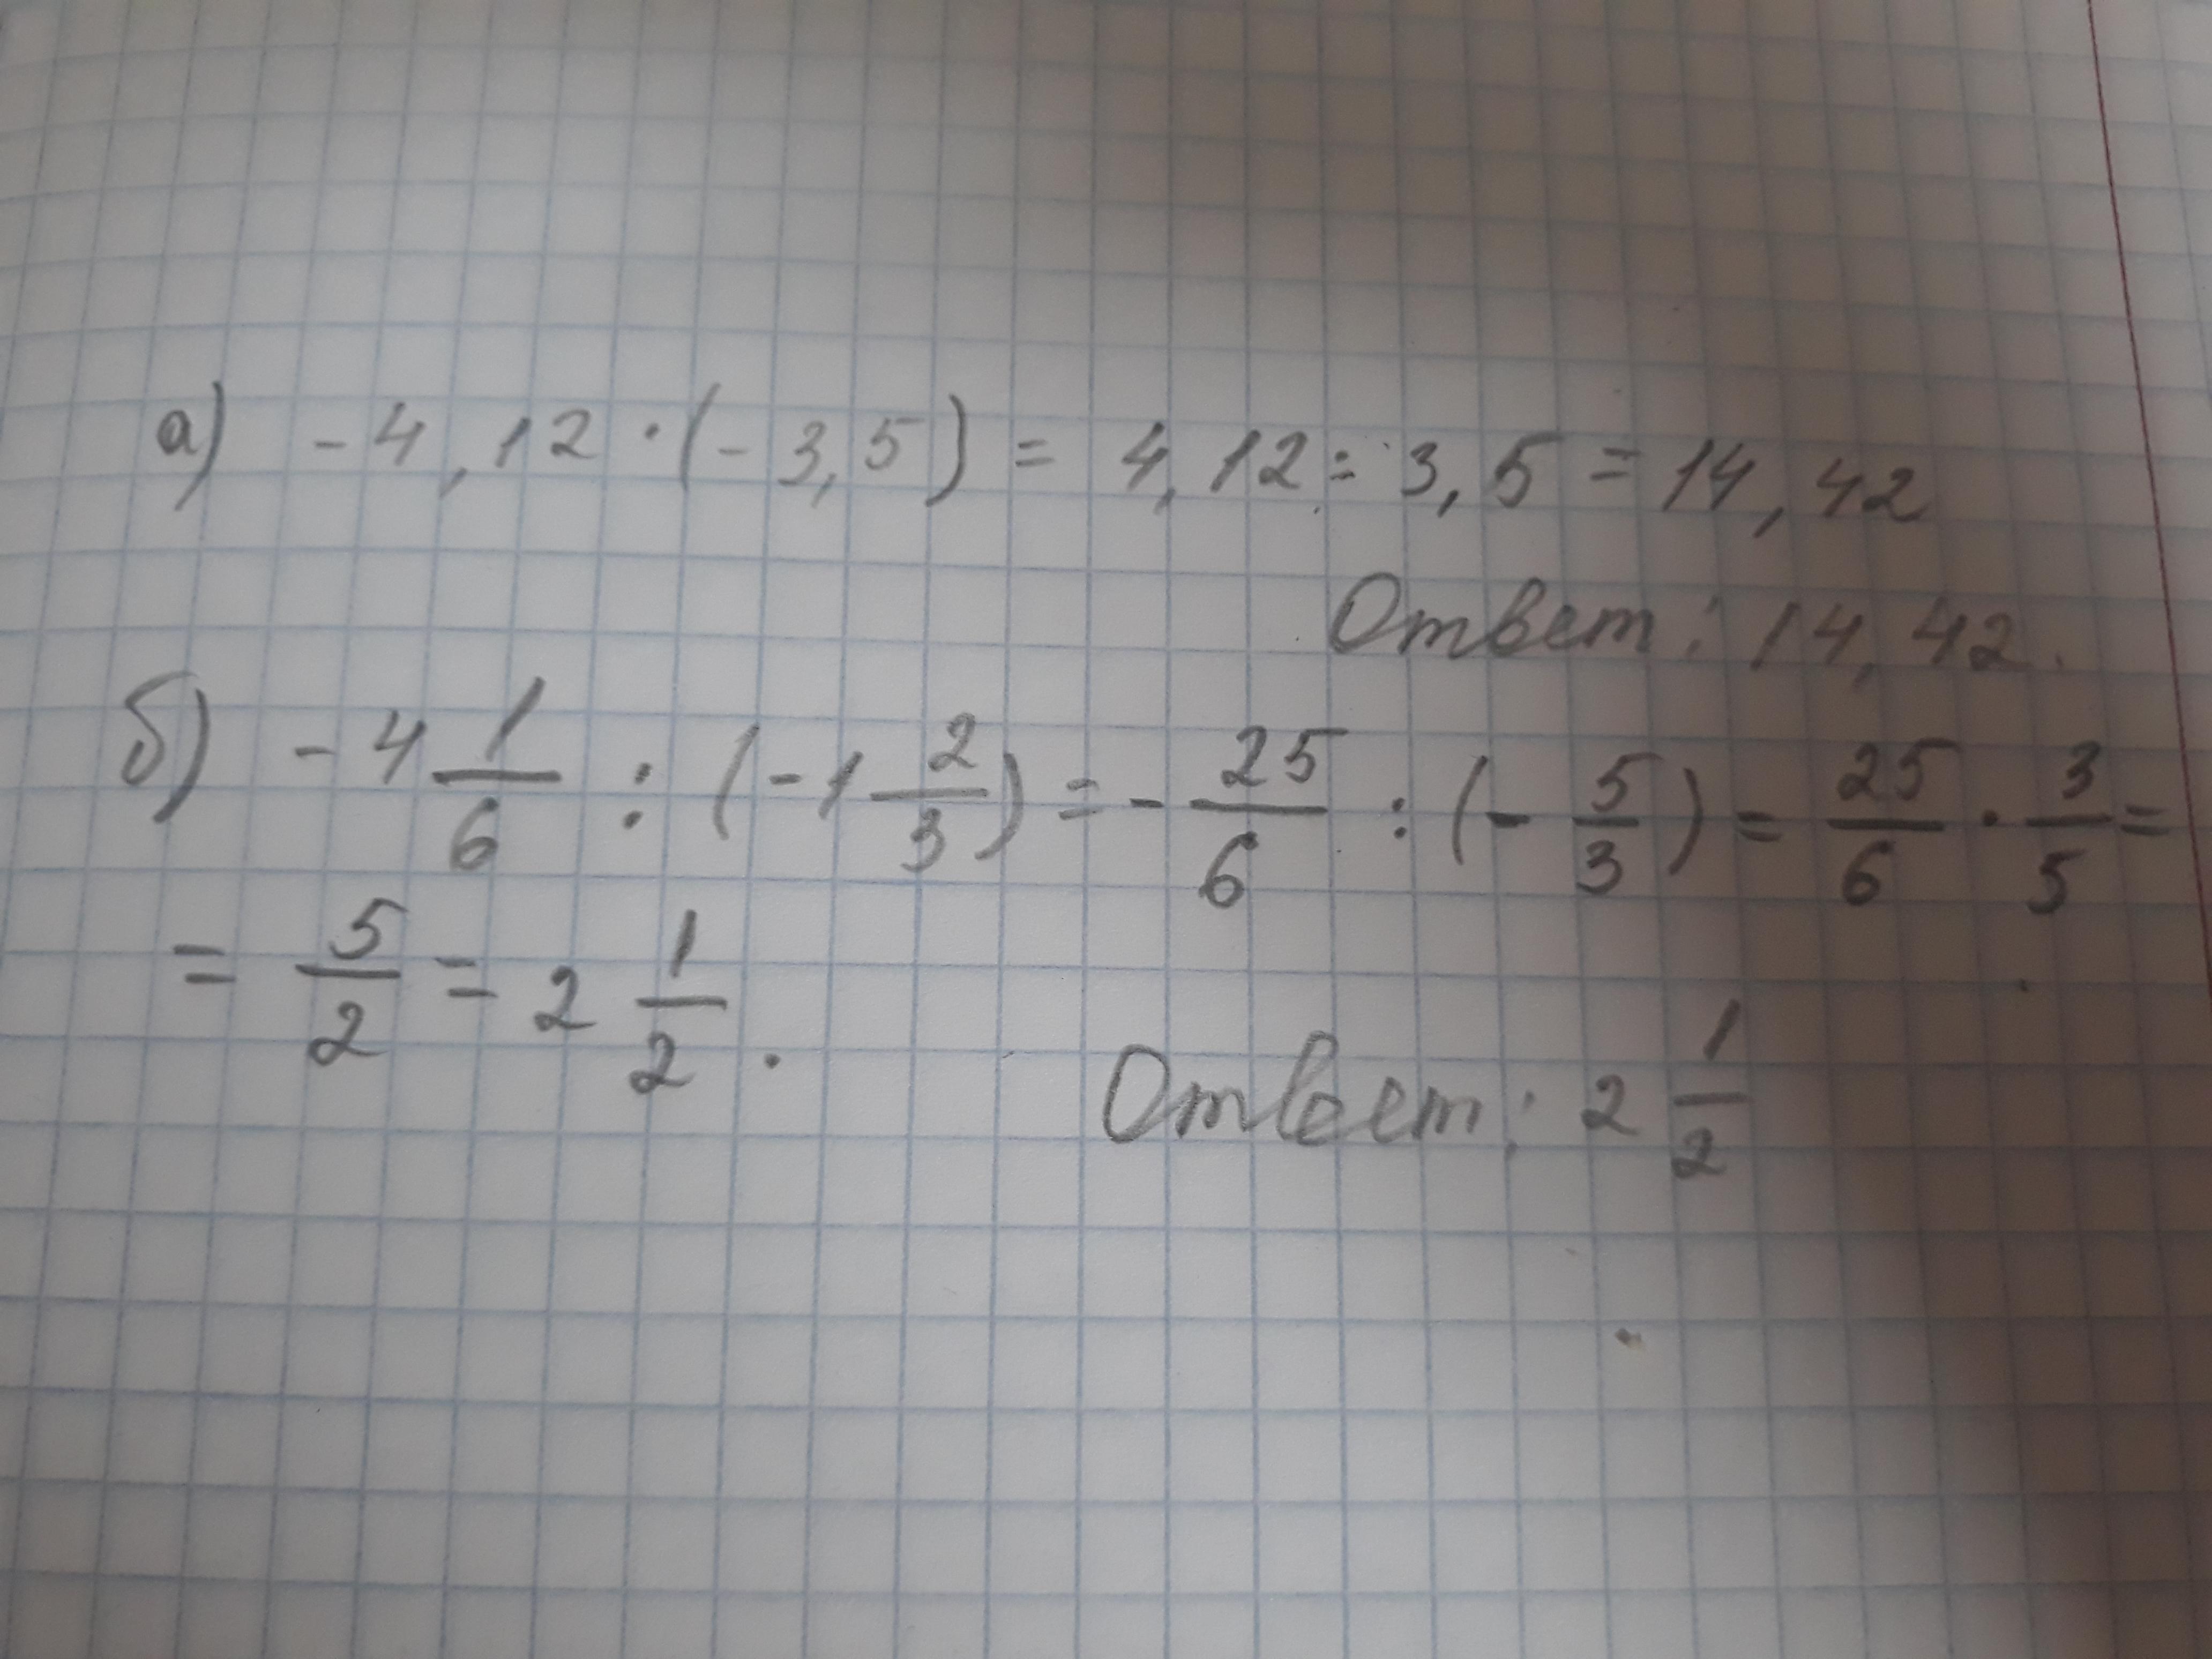 а) -4,12 · (-3,5) = 4,12 : 3,5 = 14,42
Ответ: 14,42.
б) -4 1/6 : (-1 2/3) = - 25/6 : (- 5/3) = 25/6 · 3/5 =
= 5/2 = 2 1/2.
Ответ: 2 1/2